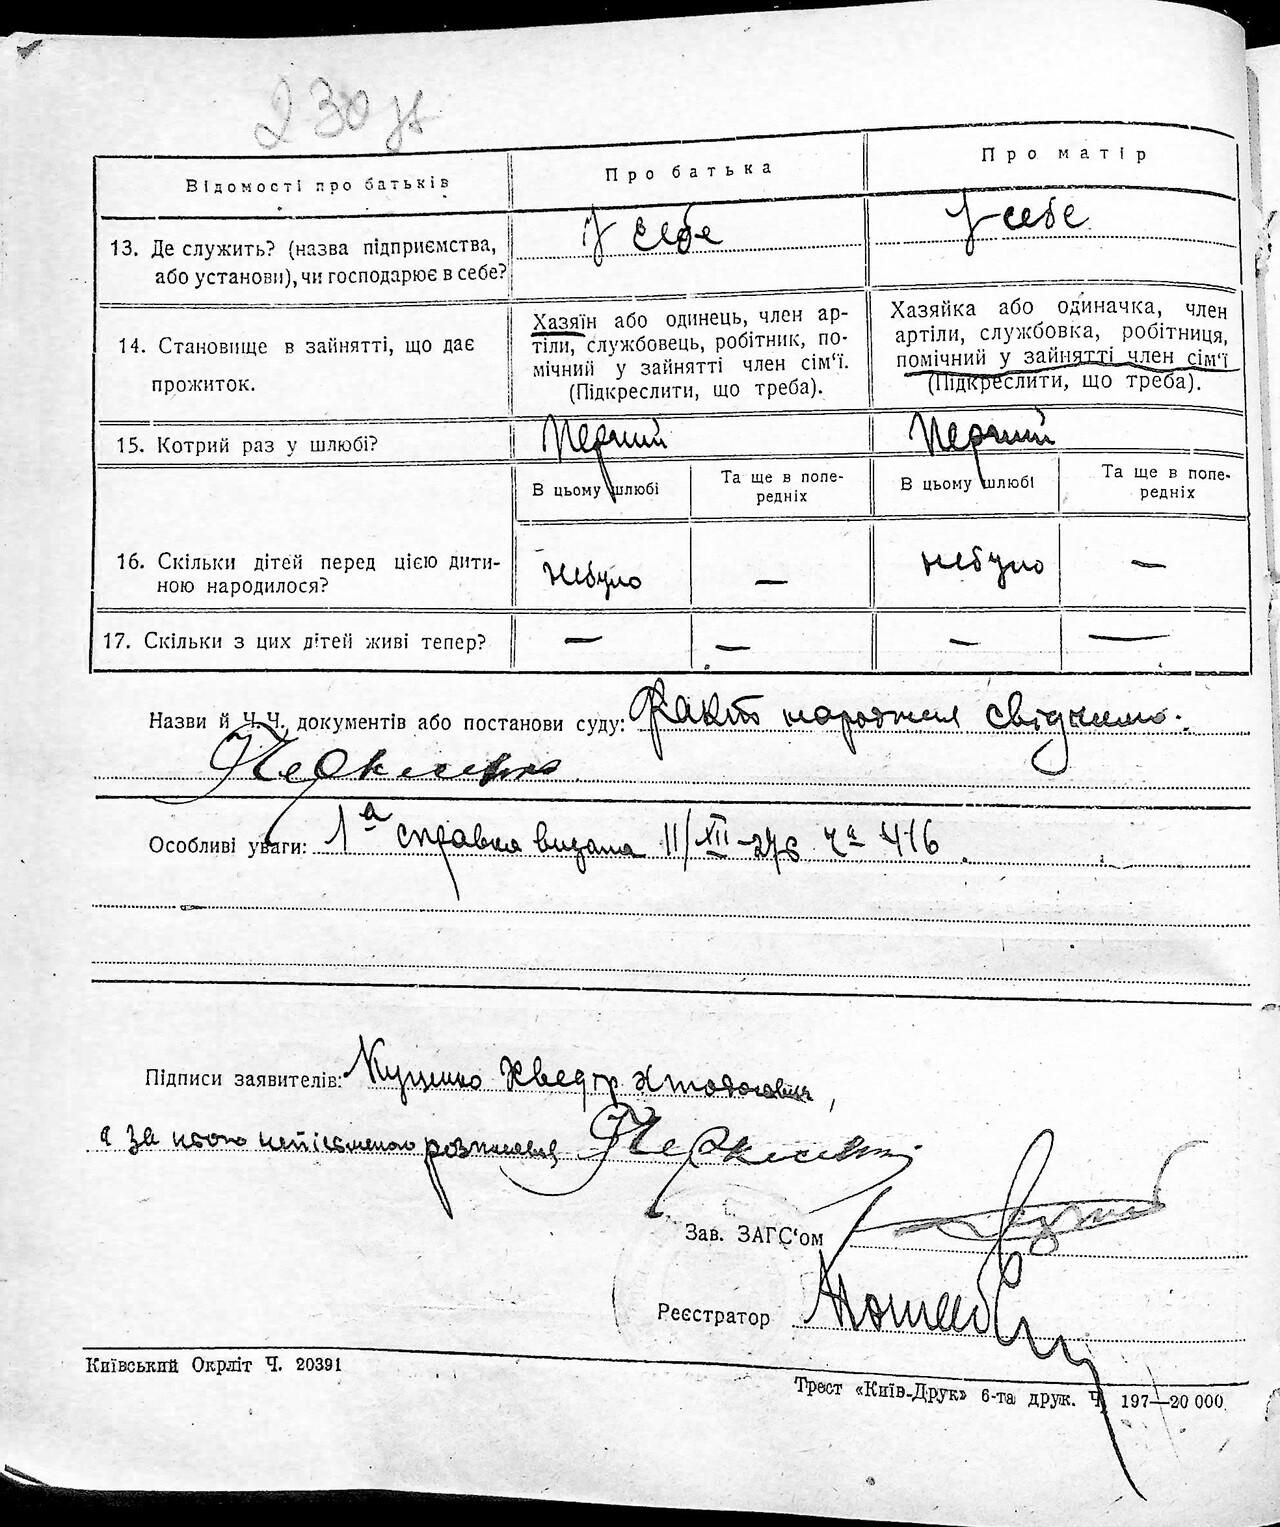 230
Відомості про батьків
Про батька
Про матір
13. Де служить? (назва підприємства, або установи), чи господарює в себе?
У себе
У себе
14. Становище в зайнятті, що дає прожиток.
Хазяїн або одинець, член ар-
тіли, службовець, робітник, по-
мічний у зайнятті член сім'ї.
(Підкреслити, що треба).
Хазяйка або одиначка, член
артіли, службовка, робітниця,
помічний у зайнятті член сім'ї
(Підкреслити, що треба).
15. Котрий раз у шлюбі?
Перший
Перший
В цьому шлюбі
Та ще в попе-
редніх
В цьому шлюбі
Та ще в попе-
редніх
16. Скільки дітей перед цією дити-
ною народилося?
небуло
—
небуло
—
17. Скільки з цих дітей живі тепер?
—
—
—
—
Назви й Ч.Ч. документів або постанови суду: Факт народження свідчимо.
Особливі уваги: 1а справка видана 11/XII-27 ча 416
Підписи заявителів:
а за нього неписьменого розписався
Зав. ЗАГС'ом
Реєстратор
Київський Окрліт Ч. 20391
Трест «Київ-Друк» 6-та друк. Ч. 197—20 000